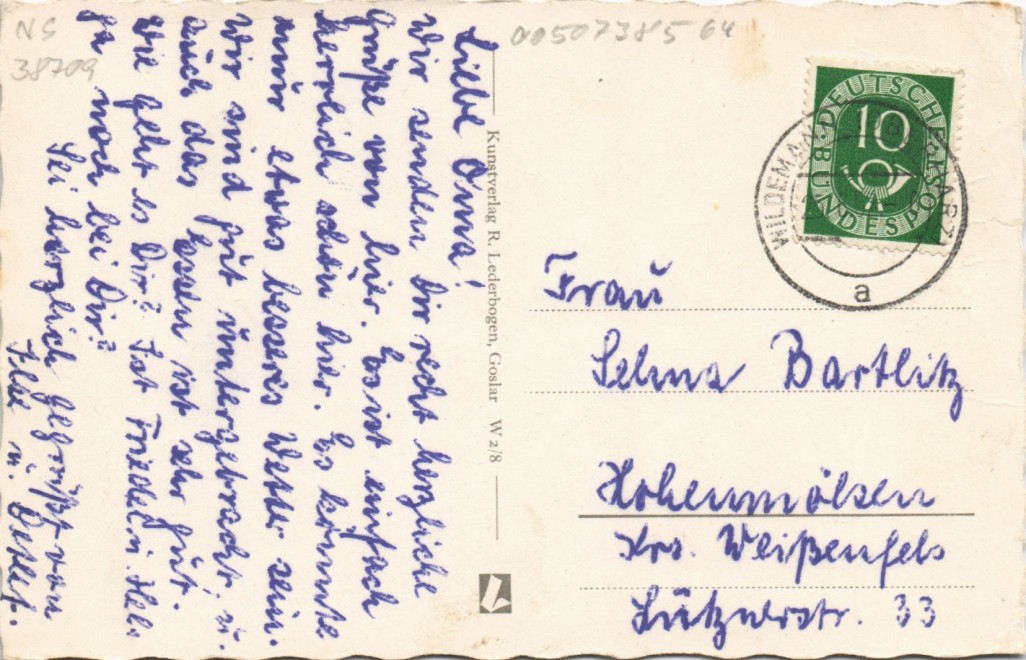 NS
38709
0050738564
Liebe Omma!
Wir senden Dir recht herzliche
Grüße von hier. Es ist einfach
herrlich schön hier. Es könnte
nur etwas besseres Wetter sein.
Wir sind gut untergebracht, u.
auch das Essen ist sehr gut.
Wie geht es Dir? Ist Friedel u. Hel.
ja noch bei Dir?
Sei herzlich gegrüßt von
Ilse u. Detlef.
Kunstverlag R. Lederbogen, Goslar W 2/8
DEUTSCHE BUNDESPOST
10
WILDEMANN
a
Frau
Selma Bartlitz
Hohenmölsen
Krs. Weißenfels
Lütznerstr. 33